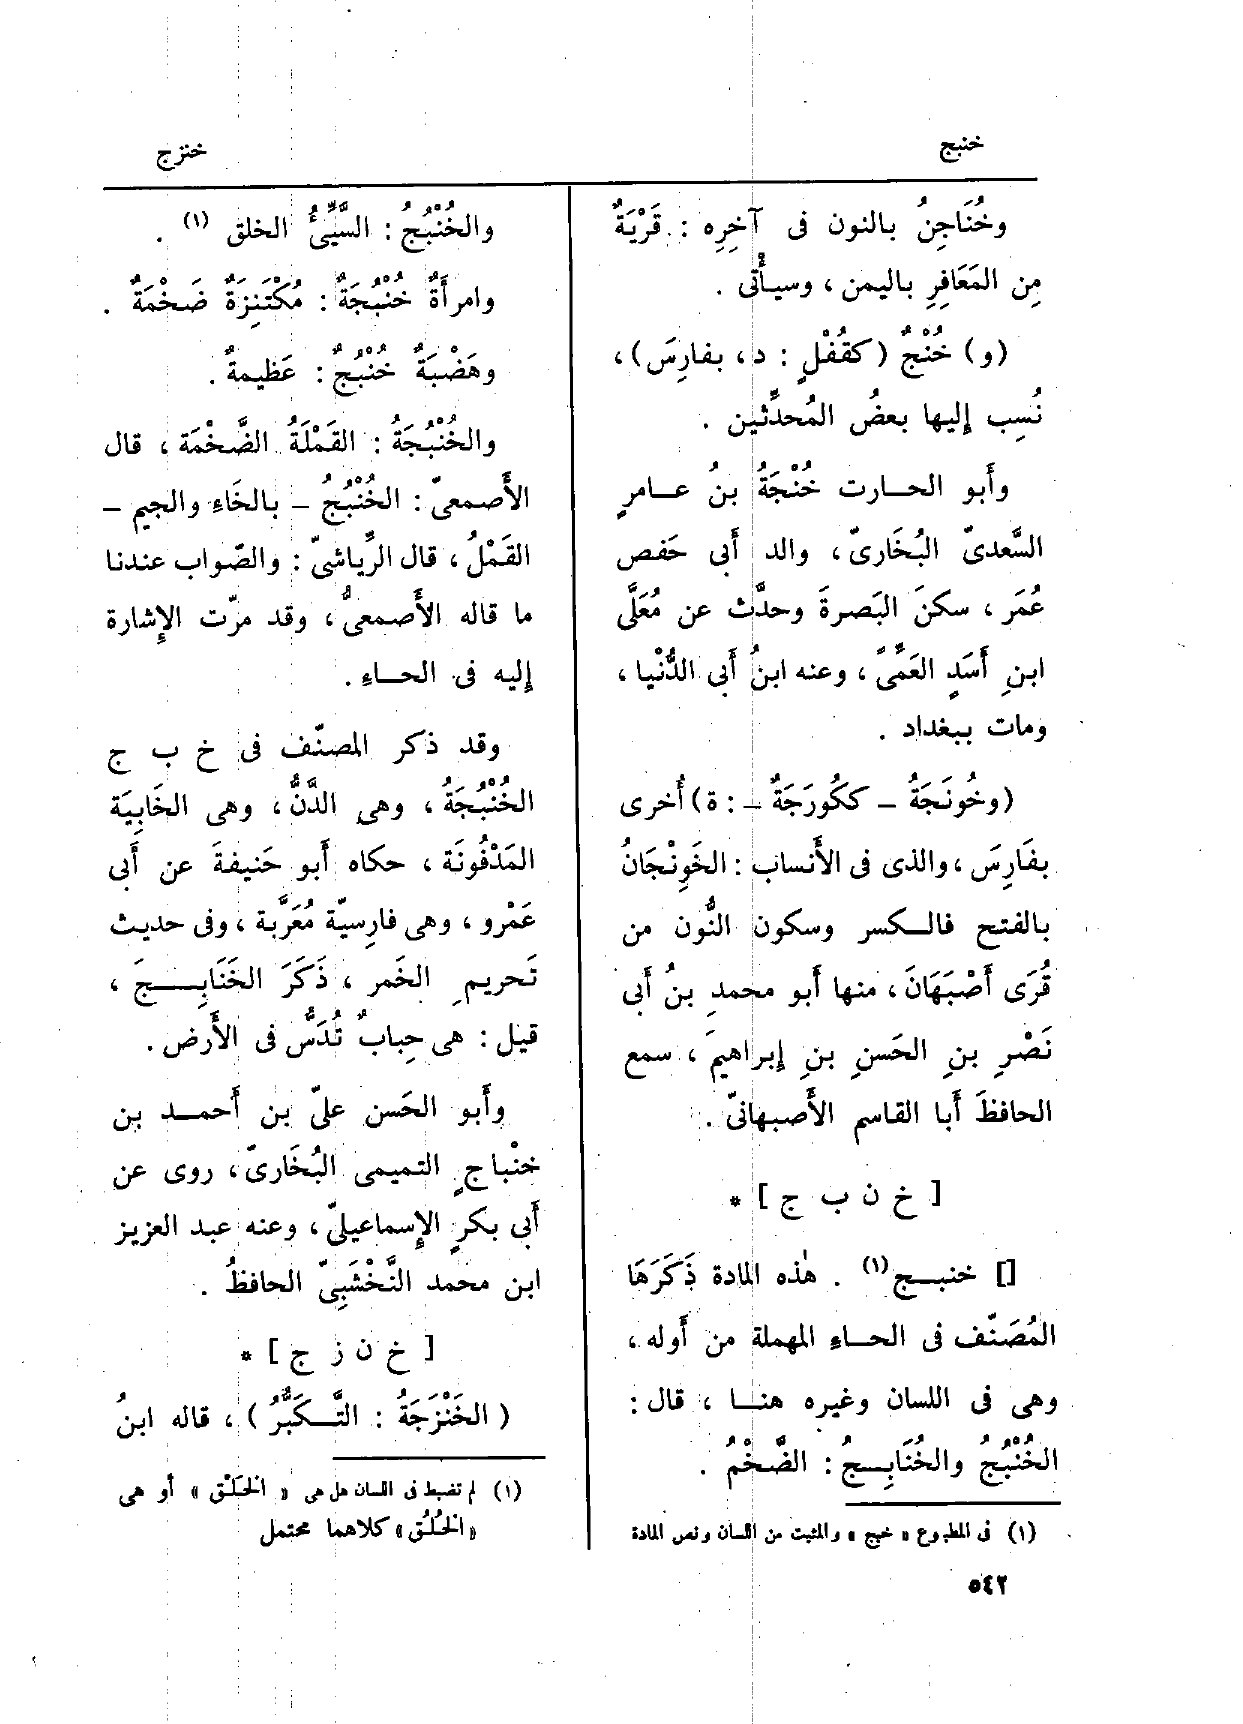 خنبج
خنزج
وخُنَاجِنُ بالنون فى آخِرِه : قَرْيَةٌ
مِن المَعَافِرِ باليمن ، وسيأْتى .
(و) خُنْجٌ (كقُفْلٍ : د ، بفارِسَ) ،
نُسِب إِليها بعضُ المُحدِّثين .
وأَبو الحـارث خُنْجَةُ بنُ عـامرٍ
السَّعدىّ البُخَارىّ ، والد أَبى حَفص
عُمَر ، سكنَ البَصرةَ وحدَّث عن مُعَلَّى
ابنِ أَسَدٍ العَمِّىّ ، وعنه ابنُ أَبى الدُّنْيا ،
ومات ببغداد .
(وخُونَجَةُ - ككُورَجَةٌ - : ة) أُخرى
بفَارِسَ ، والذى فى الأَنساب : الخَوِنْجَانُ
بالفتح فالـكسر وسكون النُّون من
قُرَى أَصْبَهَانَ ، منها أَبو محمدِ بنُ أَبى
نَصْرِ بنِ الحَسنِ بنِ إِبراهيمَ ، سمع
الحافظَ أَبا القاسم الأَصبهانىّ .
[ خ ن ب ج ] *
[] خنبـج (١) . هٰذه المادة ذَكَرَهَا
المُصَنّف فى الحـاءِ المهملة من أَوله ،
وهى فى اللسان وغيره هنـا ، قال :
الخُنْبُجُ والخُنَابِـجُ : الضَّخْمُ .
(١) فى المطبوع « خبج » والمثبت من اللسان ونص المادة
والخُنْبُجُ : السَّيِّئُ الخلق (١) .
وامرأَةٌ خُنْبُجَةٌ : مُكْتَنِزَةٌ ضَخْمَةٌ .
وهَضْبَةٌ خُنْبُجٌ : عَظِيمةٌ .
والخُنْبُجَةُ : القَمْلَةُ الضَّخْمَة ، قال
الأَصمعىّ : الخُنْبُجُ - بالخَاءِ والجيم -
القَمْلُ ، قال الرِّياشىّ : والصّواب عندنا
ما قاله الأَصمعىُّ ، وقد مرّت الإِشارة
إِليه فى الحـاءِ .
وقد ذكر المصنّف فى خ ب ج
الخُنْبُجَةُ ، وهى الدَّنُّ ، وهى الخَابِيَة
المَدْفُونَة ، حكاه أَبو حَنيفةَ عن أَبى
عَمْرو ، وهى فارِسيّة مُعَرَّبة ، وفى حديث
تَحريمِ الخَمر ، ذَكَرَ الخَنَابِـجَ ،
قيل : هى حِبابٌ تُدَسُّ فى الأَرض .
وأَبو الحَسن علىّ بن أَحمـد بن
خنْباجٍ التميمى البُخَارىّ ، روى عن
أَبى بكرٍ الإِسماعيلىّ ، وعنه عبد العزيز
ابن محمد النَّخْشَبِىّ الحافظُ .
[ خ ن ز ج ] *
( الخَنْزَجَةُ : التَّـكَبُّرُ ) ، قاله ابنُ
(١) لم تضبط فى اللسان هل هى « الخَلْق » أو هى
« الخُلُق » كلاهما محتمل
٥٤٢